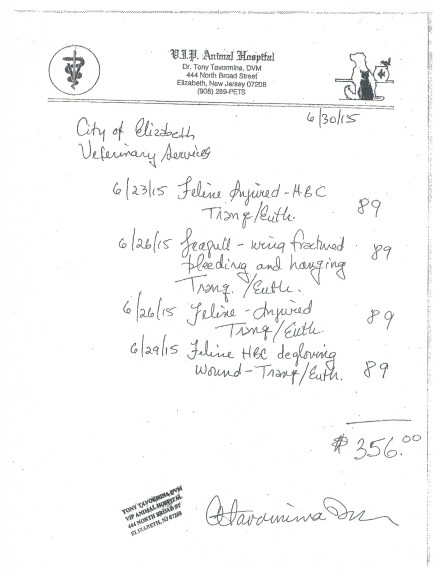 V.I.P. Animal Hospital
Dr. Tony Tavormina, DVM
444 North Broad Street
Elizabeth, New Jersey 07208
(908) 289-PETS
6/30/15
City of Elizabeth
Veterinary Services
6/23/15 Feline Injured - HBC
Tranq/Euth. 89
6/26/15 Seagull - wing fractured 89
bleeding and hanging
Tranq./Euth.
6/26/15 Feline - Injured
Tranq/Euth. 89
6/29/15 Feline HBC degloving
Wound - Tranq/Euth. 89
$356.00
TONY TAVORMINA DVM
VIP ANIMAL HOSPITAL
444 NORTH BROAD ST
ELIZABETH, NJ 07208